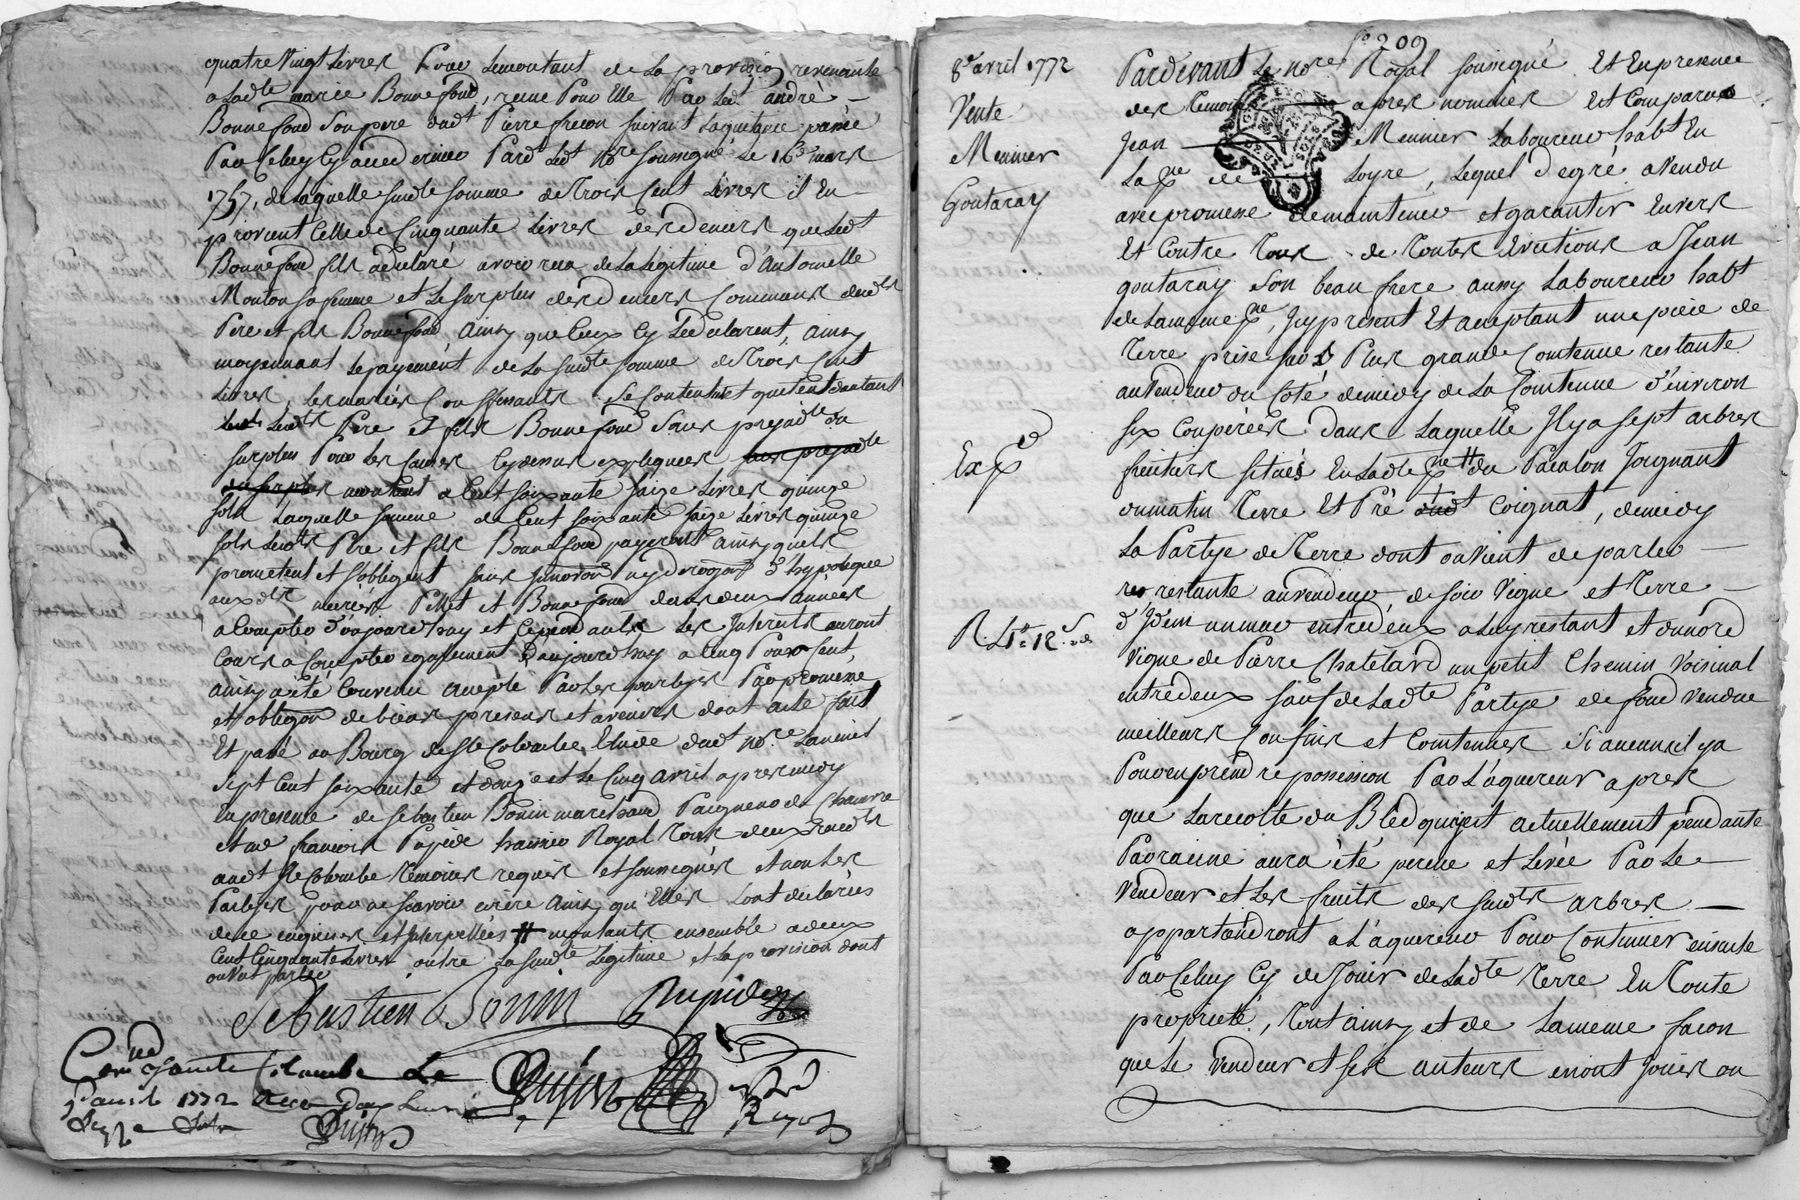 quatre vingt livres Pour le montant de la provision revenante
a Ladte marie Bonnefond, reçue Pour Elle Par Ledt andré
Bonnefond Son pere dudt Pierre frecon suivant La quitance passée
Par Celuy Cy audernier Pardt Ledt nore soussigné Le 16e mars
1757, de Laquelle susdte somme de Trois Cent Livres il En
provient Celle de Cinquante Livres des deniers que Ledt
Bonnefond fils a declaré avoir reçu de La Légitime d'Antoinette
Mouton sa femme et Le surplus des deniers Communs desdts
Pere et fils Bonnefond, ainsy que Ceux Cy Le declarent, ainsy
moyennant Le payement de La susdte somme de Trois Cent
Livres, Les mariés Confessants Se Contentent et quitent d'autant
Lesdts Père et fils Bonnefond Sans prejudce du
surplus Pour Les Causes Cy dessus expliquées sans prejudce
du surplus montant a Cent soixante saize Livres quinze
sols Laquelle somme de Cent soixante saize Livres quinze
sols Lesdts Père et fils Bonnefond payeront ainsy quils
prometent et s'obligent sans novaon ny derogaon d'hypoteque
auxdts mariés Pillet et Bonnefond dans deux années
a Compter d'aujourdhuy et Cependant Les Interests auront
Cours a Compter egalement d'aujourdhuy a Cinq Pour Cent,
ainsy a été Convenu accepté Par Les partyes Par promesse
et obligaon de biens presens et avenir dont acte fait
Et passé au Bourg de Ste Colombe Etude dudt nore L'an mil
sept Cent soixante et douze et Le Cinq avril apres midy
En presence de sebastien Bonin marchand Paigneur de Chanvre
et me francois Papide huissier Royal Tous deux
audt Ste Colombe Temoins requis et soussignés et non Les
Partyes pour ne scavoir ecrire ainsy qu'Elles L'ont déclarées
de ce enquises et Interpellées # montants ensemble a deux
Cent Cinquante Livres outre La susdte Légitime et La provision dont
on Vat parler
Sebastien Bonin Papide
Comé Sainte Colombe Le
5 avril 1772
fo 209
8e avril 1772
Vente
Meunier
Goutaray
Exp
Pardevant Le nore Royal soussigné Et En presence
des Temoins apres nommés Est Comparu
Jean Meunier Laboureur habt En
La psse de Loyre, Lequel de gré a vendu
avec promesse de maintenir et garantir Envers
Et Contre Tous de Toutes Evictions a Jean
goutaray Son beau frere aussy Laboureur habt
de La meme psse, Icy present Et aceptant une pièce de
Terre prise sur Plus grande Contenue restante
au Vendeur du Coté de midy de La Contenue d'environ
six Couperées dans Laquelle Il y a sept arbres
fruitiers situés En Ladte psse # du Paralon Joignant
du matin Terre Et Pré dudt Coignat, de midy
La Partye de Terre dont on Vient de parler
restante au Vendeur, de soir Vigne et Terre
d'Idem un mur entredeux a Luy restant et du nord
Vigne de Pierre Chatelard un petit Chemin Voisinal
entredeux sauf de Ladte Partye de fond vendue
meilleurs Confins et Contenues Si aucuns il y a
Pour en prendre possession Par L'aquereur apres
que La recolte du Bled qui est actuellement pendante
Par racine aura été perçue et Levée Par Le
Vendeur et Les fruits des susdts arbres
appartiendront a L'aquereur Pour Continuer ensuite
Par Celuy Cy de Jouir de Ladte Terre En Toute
proprieté, Tout ainsy et de La meme facon
que Le Vendeur et ses auteurs en ont Jouis ou